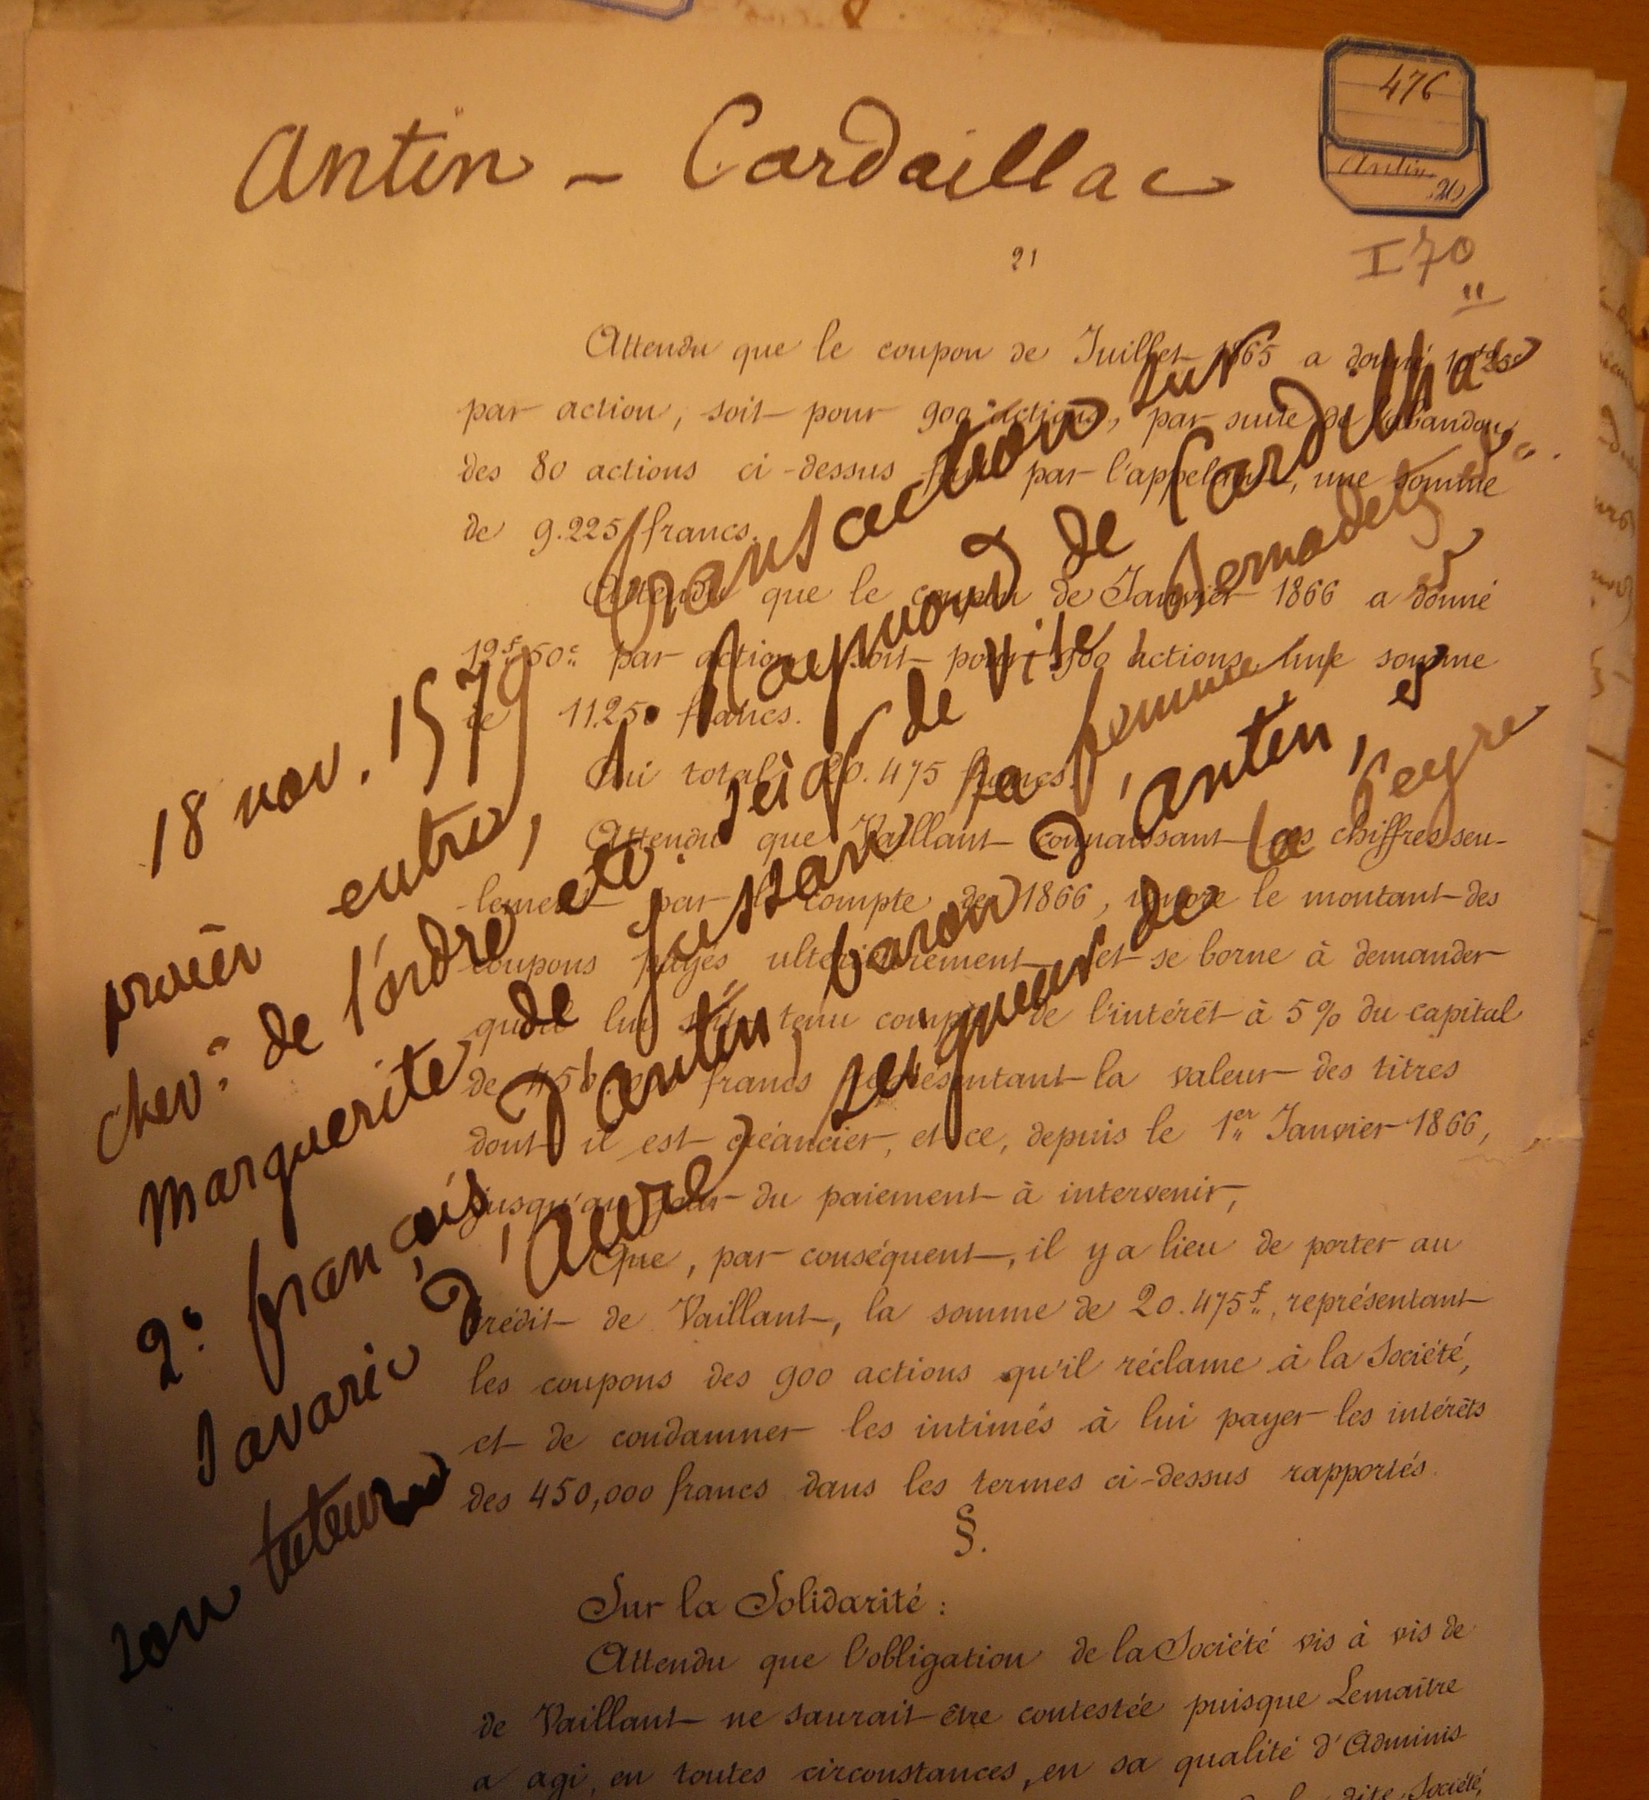 Antin - Cardaillac
476
Antin
I 70
"
21
Attendu que le coupon de Juillet 1865 a donné
par action, soit pour 900 actions, par suite de l'abandon
des 80 actions ci-dessus fait par l'appelant, une somme
de 9.225 francs.
Attendu que le coupon de Janvier 1866 a donné
12f 50c par action soit pour 900 actions une somme
de 11.250 francs.
Qui total 20.475 francs.
Attendu que Vaillant connaissant ces chiffres seu-
lement par le compte de 1866, ignore le montant des
coupons payés ultérieurement et se borne à demander
qu'il lui soit tenu compte de l'intérêt à 5% du capital
de 450.000 francs représentant la valeur des titres
dont il est créancier, et ce, depuis le 1er Janvier 1866,
jusqu'au jour du paiement à intervenir,
Que, par conséquent, il y a lieu de porter au
crédit de Vaillant, la somme de 20.475f, représentant
les coupons des 900 actions qu'il réclame à la Société,
et de condamner les intimés à lui payer les intérêts
des 450,000 francs dans les termes ci-dessus rapportés.
§.
Sur la Solidarité :
Attendu que l'obligation de la Société vis à vis de
de Vaillant ne saurait être contestée puisque Lemaitre
a agi, en toutes circonstances, en sa qualité d'Adminis
dite Société,
18 nov. 1579 transaction sur
procès entre, 1° Raymond de Cardillac
chev.r de l'ordre etc. seigr de vite Bernadets et
Marguerite de Jussan sa femme et
2° françois d'antin baron d'antin, et
Savaric d'aure seigneur de la Peyre
son tuteur